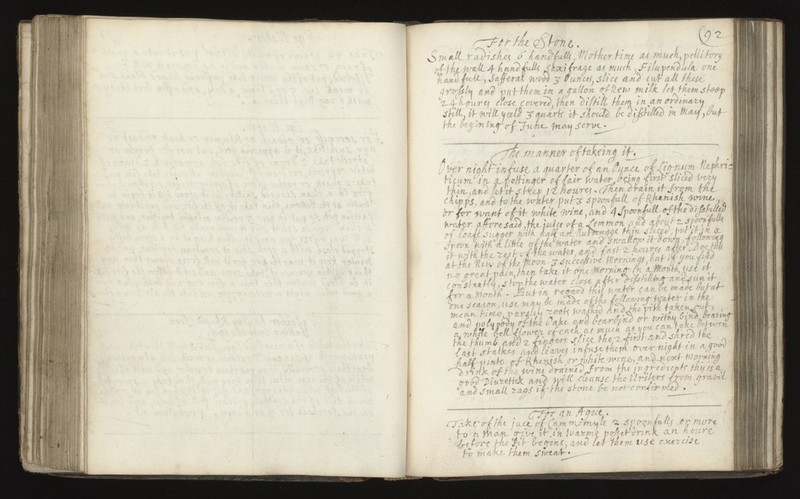 92
For the Stone.
Small radishes 6 handfulls, Mother time as much, pellitory
of the wall 4 handfulls, Saxifrage as much, Filapendula one
handfull, Safferas wood 3 Ounces, slice and cut all these
grossly and put them in a gallon of New milk let them steep
24 houres close covered, then distill them in an ordinary
still, it will yeald 3 quarts it should be distilled in May, but
the begining of June may serve.
The manner of takeing it.
Over night infuse a quarter of an Ounce of Lignum Nephri=
ticum in a pottinger of fair water, being first sliced very
thin, and let it steep 12 houres. Then drain it from the
chipps, and to the water put 3 spoonfull of Rhenish wine,
or for want of it white wine, and 4 spoonfull of the distelled
water afforesaid, the juice of a Lemmon, and about 2 spoonfulls
of loaf sugger with half an Nuttmugge thin sliced, put it in a
spoon with a little of the water and swallow it down,
it with the rest of the water, and fast 2 houres after. Doe this
at the New of the Moon 3 successive Mornings, but if you find
no great pain, then take it one morning in a Month, use it
constantly, stop the water close after distilling and sun it
for a Month. But in regard this water can be made but at
one season, use may be made of the following water in the
mean time, parsly roots washed and the pith taken out,
and polypody of the oake and bearbind or withy bind, bearing
a white bell flower of each as much as you can take between
the thumb and 2 fingers slice the 2 first and shred the
last stalkes and leaves infuse them over night in a good
half pinte of Rhenish or white wine, and next Morning
drink of the wine drained from the ingredients this is a
good Diuretick and will cleanse the Uriters from gravel
and small rags if the stone be not confirmed.
For an Ague.
Take of the juce of Cammomyle 2 spoonfulls or more
to a Man give it in warme posset drink an houre
before the fit begins, and let them use exercise
to make them sweat.